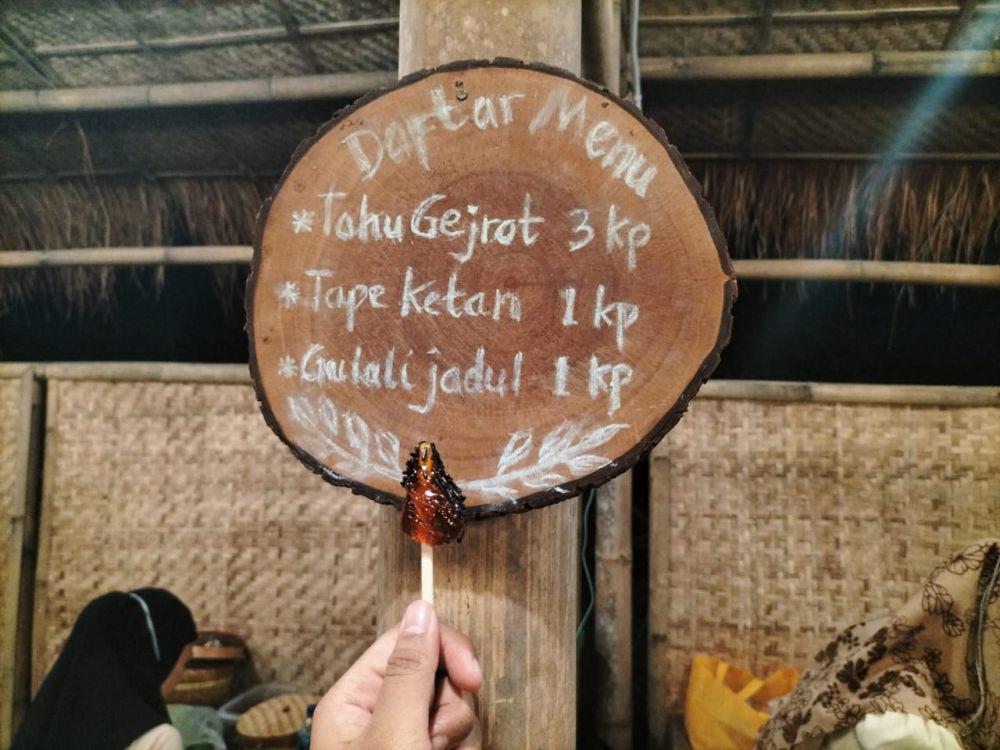 Daftar Menu
*Tahu Gejrot 3 kp
*Tape ketan 1 kp
*Gulali jadul 1 kp